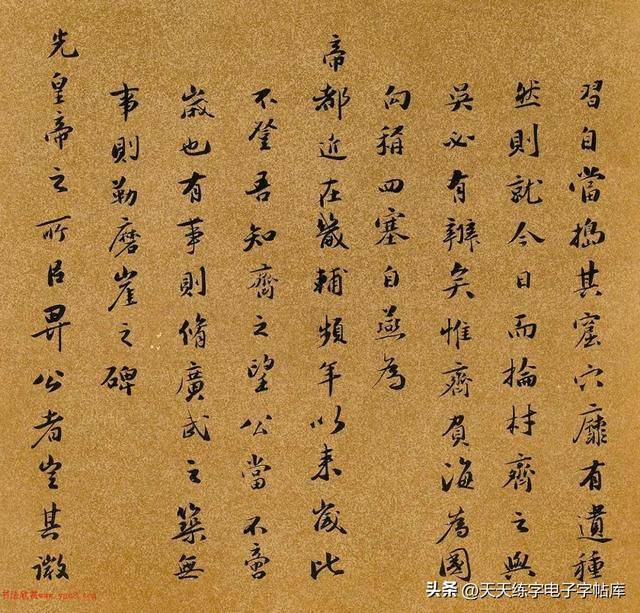 習自當搗其窟穴靡有遺種
然則就今日而掄材齊之與
吳必有辨矣惟齊負海為國
向稱四塞自燕為
帝都近在畿輔頻年以来歲比
不登吾知齊之望公當不啻
歲也有事則脩廣武之築無
事則勒磨崖之碑
先皇帝之所召畀公者豈其微
书法欣赏www.yac8.com
头条 @天天练字电子字帖库